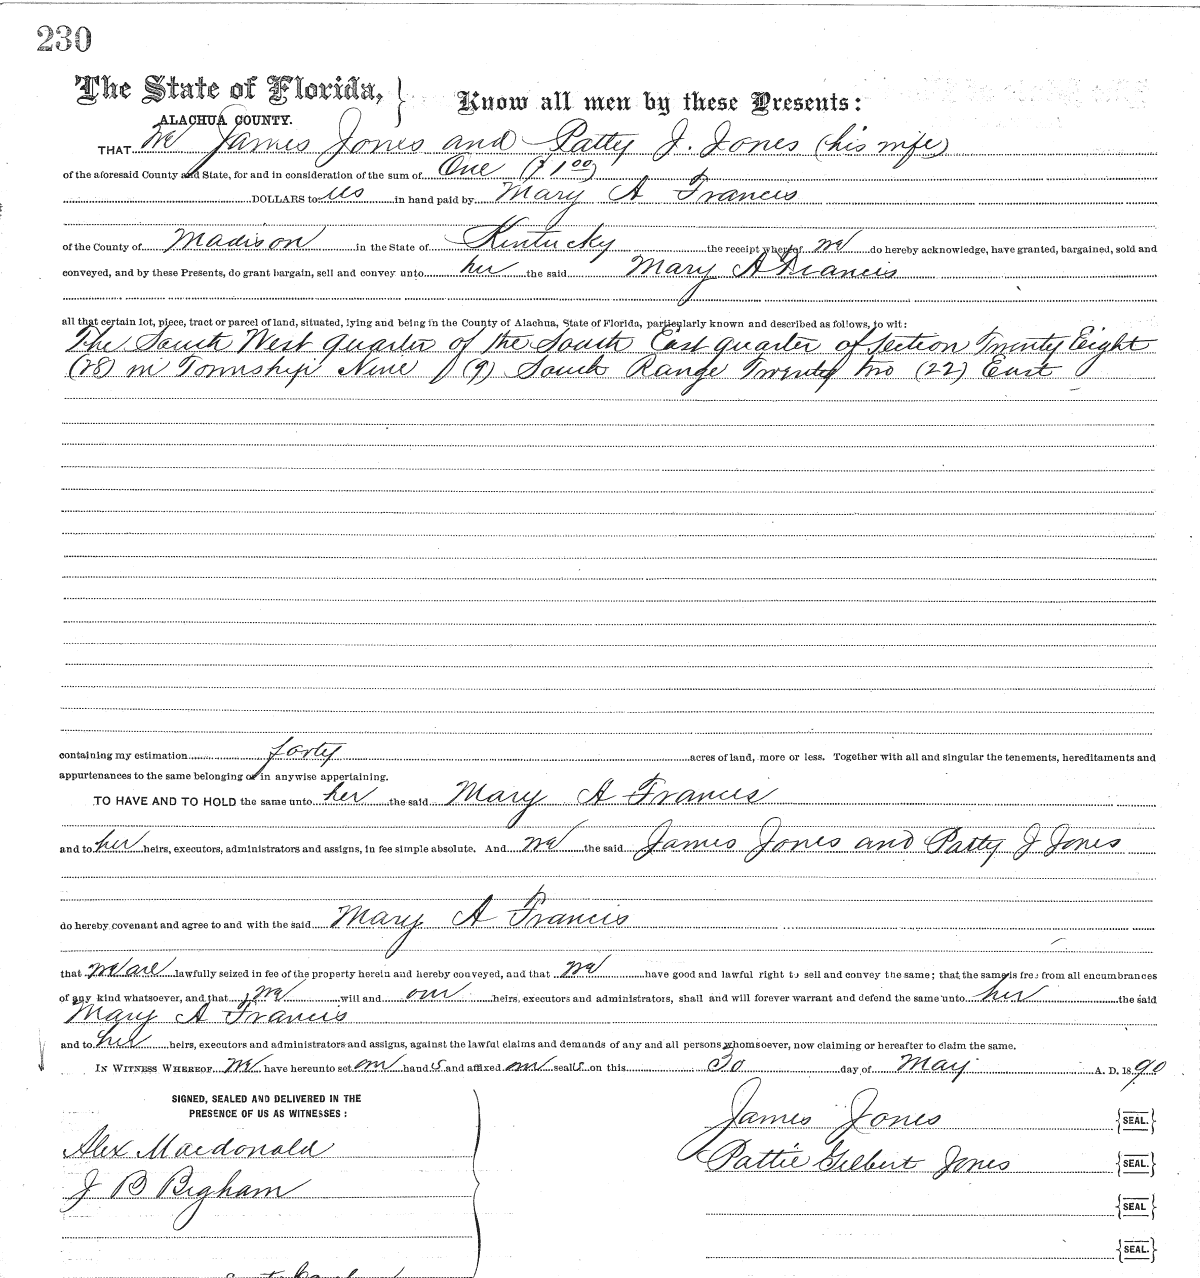 230
The State of Florida,
ALACHUA COUNTY.
Know all men by these Presents:
THAT We James Jones and Patty J. Jones (his wife)
of the aforesaid County and State, for and in consideration of the sum of One ($1.00)
DOLLARS to us in hand paid by Mary A Francis
of the County of Madison in the State of Kentucky the receipt whereof we do hereby acknowledge, have granted, bargained, sold and
conveyed, and by these Presents, do grant bargain, sell and convey unto her the said Mary A Francis
all that certain lot, piece, tract or parcel of land, situated, lying and being in the County of Alachua, State of Florida, particularly known and described as follows, to wit:
The South West quarter of the South East quarter of Section Twenty Eight
(28) in Township Nine (9) South Range Twenty two (22) East
containing my estimation forty acres of land, more or less. Together with all and singular the tenements, hereditaments and
appurtenances to the same belonging or in anywise appertaining.
TO HAVE AND TO HOLD the same unto her the said Mary A Francis
and to her heirs, executors, administrators and assigns, in fee simple absolute. And we the said James Jones and Patty J Jones
do hereby covenant and agree to and with the said Mary A Francis
that we are lawfully seized in fee of the property herein and hereby conveyed, and that we have good and lawful right to sell and convey the same; that the same is free from all encumbrances
of any kind whatsoever, and that we will and our heirs, executors and administrators, shall and will forever warrant and defend the same unto her the said
Mary A Francis
and to her heirs, executors and administrators and assigns, against the lawful claims and demands of any and all persons whomsoever, now claiming or hereafter to claim the same.
IN WITNESS WHEREOF We have hereunto set our hands and affixed our seals on this 30 day of May A. D. 1890
SIGNED, SEALED AND DELIVERED IN THE
PRESENCE OF US AS WITNESSES:
James Jones SEAL.
Alex Macdonald
Pattie Gilbert Jones SEAL.
J B Bigham
SEAL
SEAL.